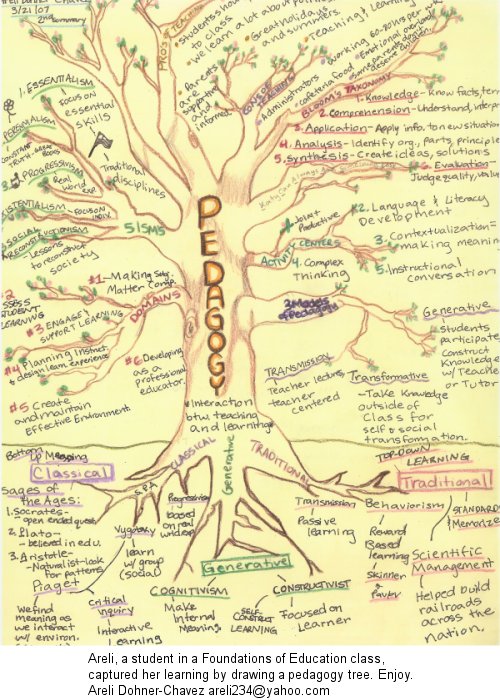 Areli Dohner Chavez
3/21/07
2nd summary
PROS of TEACHING
students show
to class
we learn a lot about
Great holidays
and summers.
Teaching & Learning
Parents
are
supportive
and
informed
CONS OF
Administrators
cafeteria food
working 60-80hrs per wk
Emotional overload
some parents don't
deserve children.
BLOOM'S TAXONOMY
1. Knowledge- Know facts, terms
2. Comprehension- Understand, interp
3. Application- Apply info. to new situation
4. Analysis- Identify org., parts, principle
5. Synthesis- Create ideas, solutions
6. Evaluation-
Judge quality, value
1. ESSENTIALISM
Focus on
essential
skills
PERENNIALISM
CONSTANT
TRUTH- GREAT BOOKS
3. PROGRESSIVISM
Real
world
EXP.
Traditional
disciplines
EXISTENTIALISM
- FOCUS ON
INDIV.
5. SOCIAL
RECONSTRUCTIONISM
- Lessons
to reconstruct
society
5 ISMS
PEDAGOGY
1. Joint
Productive
ACTIVITY CENTERS
2. Language & Literacy
Development
3. Contextualization=
making meaning
4. Complex
Thinking
5. Instructional
conversation
DOMAINS
#1- Making Subj.
Matter Comp.
#2
ASSESS
STUDENT
LEARNING
#3 ENGAGE &
SUPPORT LEARNING
#4 Planning Instruct.
& design learn. experience
#5 Create
and maintain
Effective Environment
#6 Developing
as a
professional
educator.
3 Modes
of Pedagogy
Generative
students
participate
Construct
Knowledge
w/ Teacher
or Tutor
TRANSMISSION
Teacher lectures,
teacher
centered
Transformative
- Take Knowledge
outside of
Class for
self & social
transformation.
Interaction
btw. teaching
and learning
CLASSICAL
Generative
TRADITIONAL
Classical
Sages of
the Ages:
1. Socrates-
open ended quest.
2. Plato-
- believed in edu.
3. Aristotle-
- Naturalist- look
for patterns
Piaget
We find
meaning as
we interact
w/ environ.
S.P.A
Vygotsky
learn
w/ group
(social)
Critical
inquiry
Interactive
Learning
Progressivism
based
on real
world exp
Generative
COGNITIVISM
Make
Internal
Meaning
CONSTRUCTIVIST
SELF-
CONSTRUCT
LEARNING
Focused on
Learner
TOP-DOWN
LEARNING
Traditional
Transmission
Passive
learning
Behaviorism
Reward
Based
learning
Skinner
& Pavlov
STANDARDS
Memorize
Scientific
Management
Helped build
railroads
across the
nation.
Areli, a student in a Foundations of Education class,
captured her learning by drawing a pedagogy tree. Enjoy.
Areli Dohner-Chavez areli234@yahoo.com